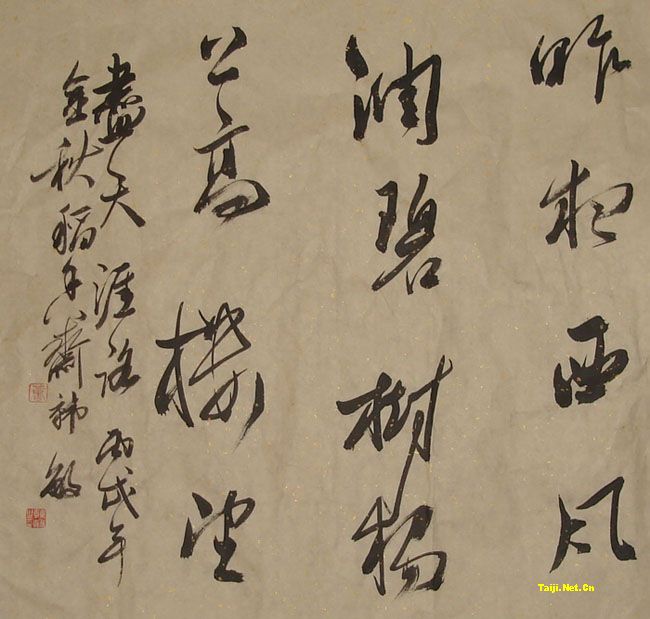 昨夜西风
凋碧树独
上高楼望
盡天涯路 丙戌年
金秋稻香齋 敏
Taiji.Net.Cn